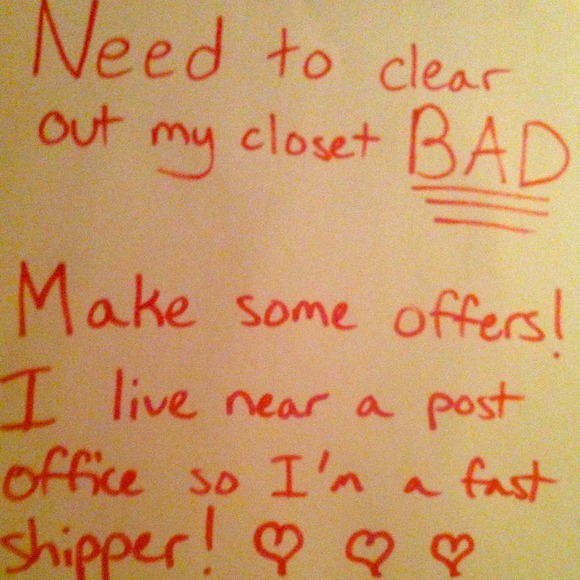 Need to clear
out my closet BAD
Make some offers!
I live near a post
office so I'm a fast
shipper! ♡ ♡ ♡